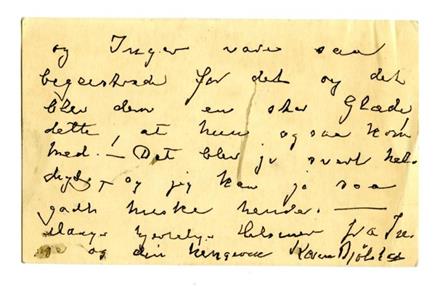 og Inger vare saa
begeistrede for det og det
blev dem en stor Glæde
dette, at hun ogsaa kom
med. — Det blev jo svært
og jeg kan jo saa
godt huske hende. —
Mange hjertelige Hilsener fra
og din hengivne Karen